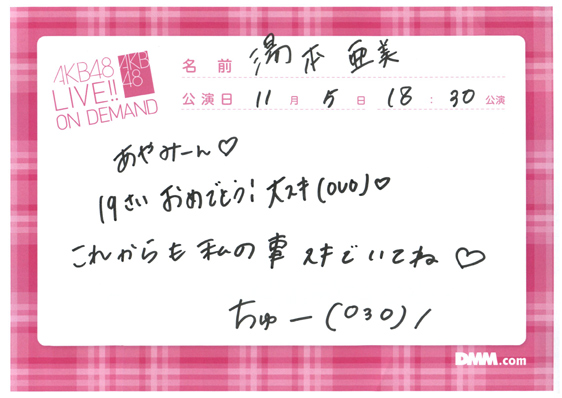 AKB48
LIVE!!
ON DEMAND
AKB
48
名前 湯本亜美
公演日 11月5日 18:30公演
あやみーん♡
19さい おめでとう! 大スキ(OUO)♡
これからも 私の事 スキでいてね ♡
ちゅー(O3O)ノ
DMM.com